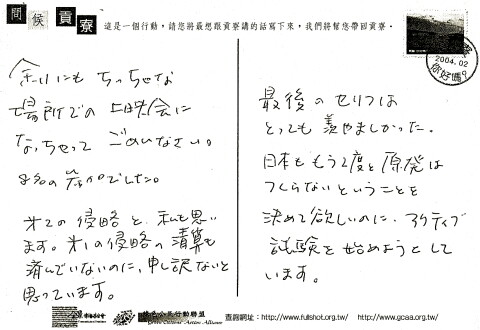 問候貢寮 這是一個行動，請您將最想跟貢寮講的話寫下來，我們將幫您帶回貢寮。
2004.02
你好嗎?
余りにも ちっちゃな
場所での 上映会に
なっちゃって ごめいなさい。
参加でした。
オ2の侵略 と、私も思い
ます。オ1の侵略の清算も
済んでいないのに、申し訳ないと
思っています。
最後のセリフは
とっても 羨やましかった。
日本も もう2度と 原発は
つくらない ということを
決めて欲しいのに、アクティブ
試験を始めようとして
います。
綠色公民行動聯盟
Action Alliance
查詢網址：http://www.fullshot.org.tw/ http://www.gcaa.org.tw/